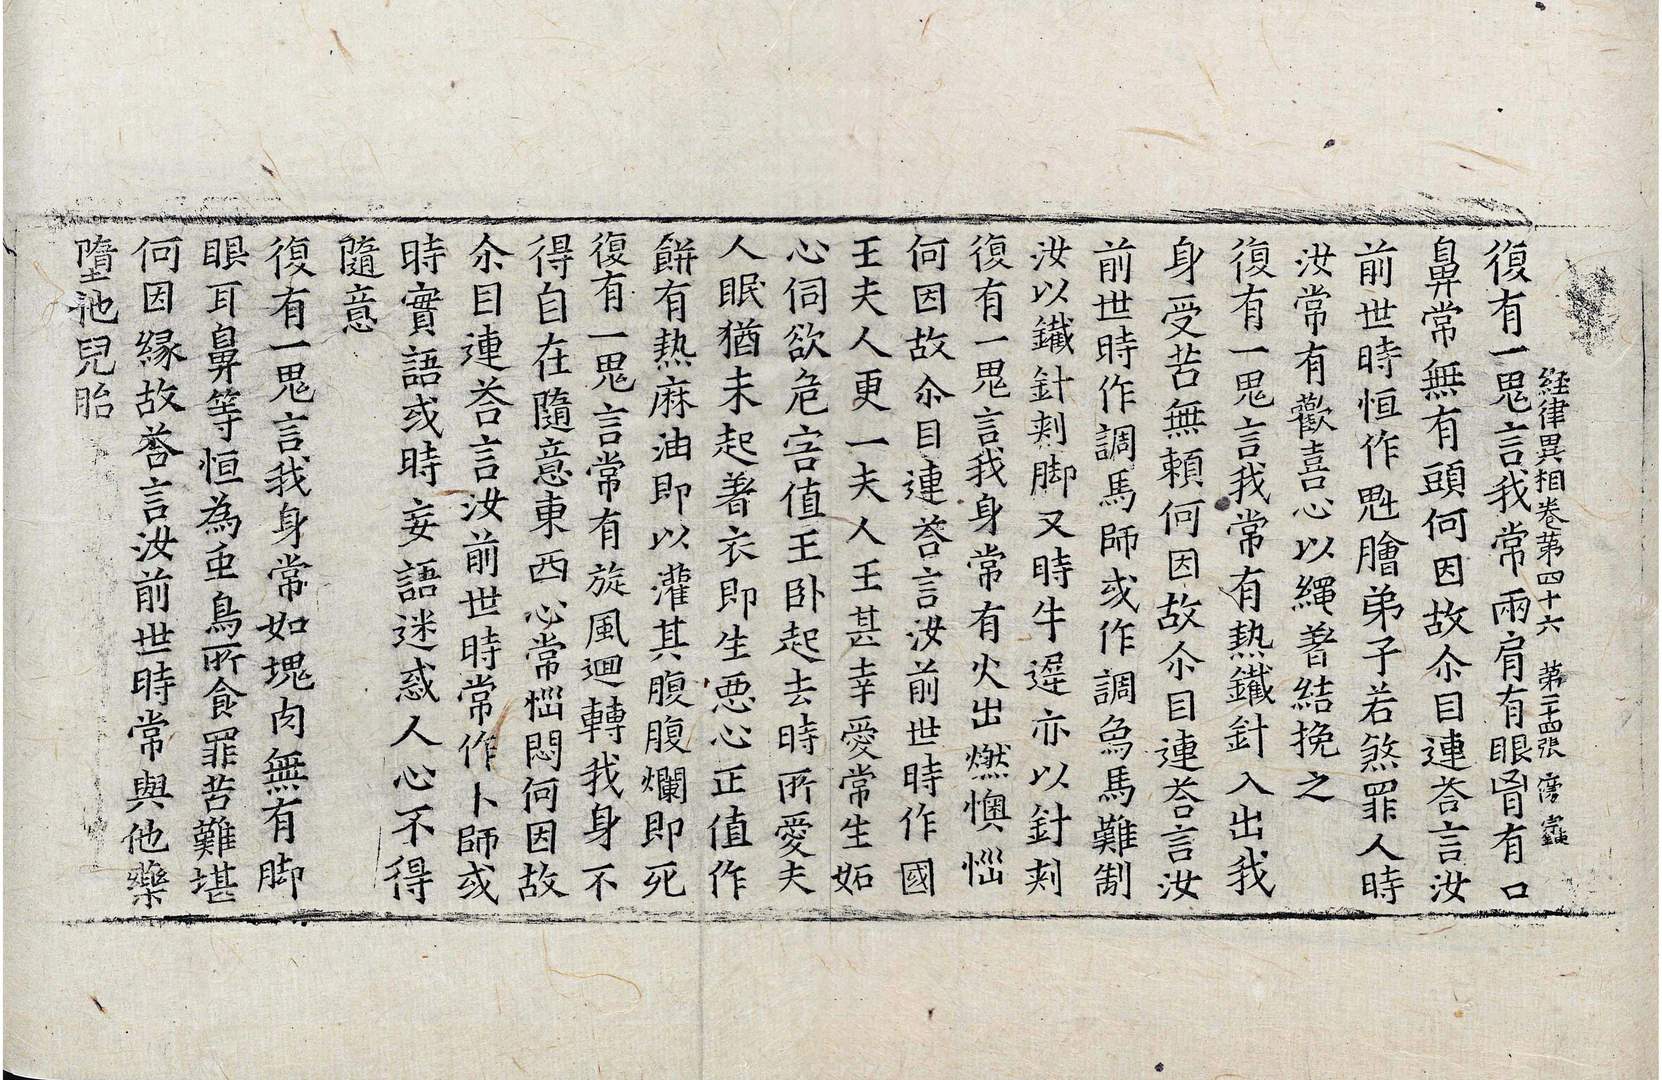 経律異相卷第四十六 第二十四張 㝑
復有一鬼言我常兩肩有眼胷有口
鼻常無有頭何因故尒目連荅言汝
前世時恒作魁膾弟子若煞罪人時
汝常有歡喜心以繩著結挽之
復有一鬼言我常有熱鐵針入出我
身受苦無頼何因故尒目連荅言汝
前世時作調馬師或作調象馬難制
汝以鐵針刾脚又時牛遲亦以針刾
復有一鬼言我身常有火出燃懊惱
何因故尒目連荅言汝前世時作國
王夫人更一夫人王甚幸愛常生妬
心伺欲危害值王卧起去時所愛夫
人眠猶未起著衣即生惡心正值作
餅有熱麻油即以灌其腹腹爛即死
復有一鬼言常有旋風迴轉我身不
得自在隨意東西心常惱悶何因故
尒目連荅言汝前世時常作卜師或
時實語或時妄語迷惑人心不得
隨意
復有一鬼言我身常如塊肉無有脚
眼耳鼻等恒為虫鳥所食罪苦難堪
何因縁故荅言汝前世時常與他藥
墮他兒胎